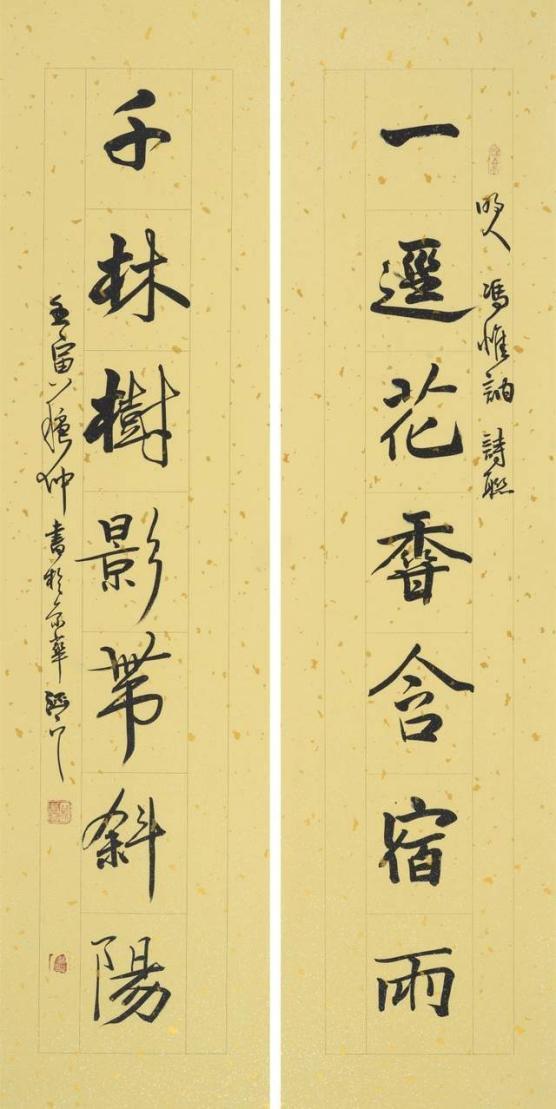 明人 馮惟訥 詩聯
一逕花香含宿雨
千林樹影帶斜陽
壬寅 仲 書於京華